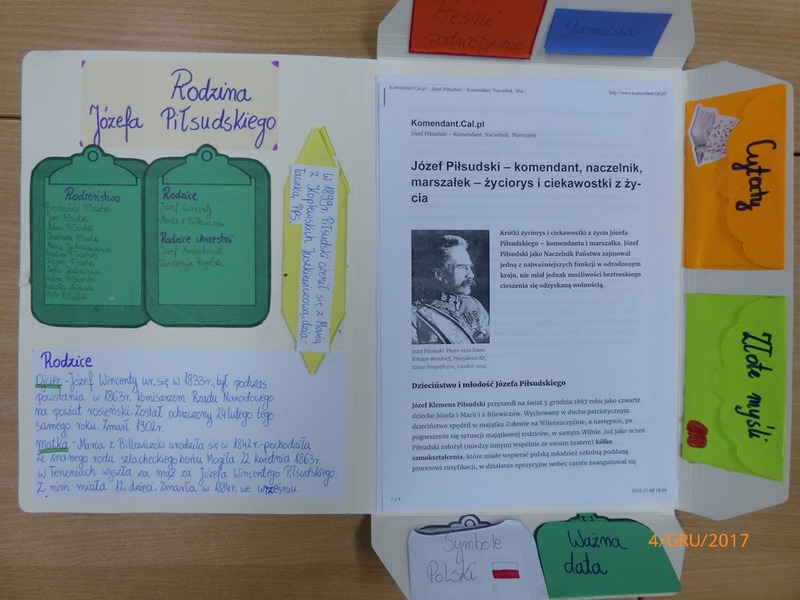 Rodzina
Józefa Piłsudskiego
Rodzeństwo
Bronisław Piłsudski
Jan Piłsudski
Adam Piłsudski
Kazimierz Piłsudski
Maria
Piłsudska
Kacper Piłsudski
Zofia
Piłsudska
Ludwika
Piotr Piłsudski
Rodzice
Józef Wincenty
Maria z Billewiczów
Rodzice chrzestni
Józef
Konstancja Rogalska
W 1899r. Piłsudski ożenił się z Marią
z Juszkiewiczową, dzia-
łaczką PPS.
Rodzice
Ojciec - Józef Wincenty ur. się w 1833r., był podczas
powstania w 1863r. komisarzem Rządu Narodowego
na powiat rosieński. Został ochrzczony 24 lutego tego
samego roku. Zmarł 1902r.
Matka - Maria z Billewiczów urodziła się w 1842r. - pochodziła
ze znanego rodu szlacheckiego herbu Mogiła 22 kwietnia 1863r.
w Teneniach wyszła za mąż za Józefa Wincentego Piłsudskiego.
Z nim miała 12 dzieci. Zmarła w 1884r. we wrześniu
Pieśni
patriotyczne
Stanowiska
Komendant.Cal.pl – Józef Piłsudski – Komendant, Naczelnik, Mar...
http://www.komendant.cal.pl/
Komendant.Cal.pl
Józef Piłsudski – Komendant, Naczelnik, Marszałek
Józef Piłsudski – komendant, naczelnik,
marszałek – życiorys i ciekawostki z ży-
cia
Krótki życiorys i ciekawostki z życia Józefa
Piłsudskiego – komendanta i marszałka. Józef
Piłsudski jako Naczelnik Państwa zajmował
jedną z najważniejszych funkcji w odrodzonym
kraju, nie miał jednak możliwości beztroskiego
cieszenia się odzyskaną wolnością.
Józef Piłsudski. Photo 1930 From:
Bohdan Wendorff, Prezydenci RP,
Szkice Biograficzne, London 1954
Dzieciństwo i młodość Józefa Piłsudskiego
Józef Klemens Piłsudski przyszedł na świat 5 grudnia 1867 roku jako czwarte
dziecko Józefa i Marii i z Bilewiczów. Wychowany w duchu patriotycznym
dzieciństwo spędził w majątku Zułowie na Wileńszczyźnie, a następnie, po
pogorszeniu się sytuacji majątkowej rodziców, w samym Wilnie. Już jako uczeń
Piłsudski założył (miedzy innymi wspólnie ze swoim bratem) kółko
samokształcenia, które miało wspierać polską młodzież szkolną poddaną
procesowi rusyfikacji, w działania opozycyjne wobec caratu zaangażował się
1 z 4
2016-11-08 18:09
Cytaty
Złote myśli
Symbole
Polski
Ważna
data
4/GRU/2017